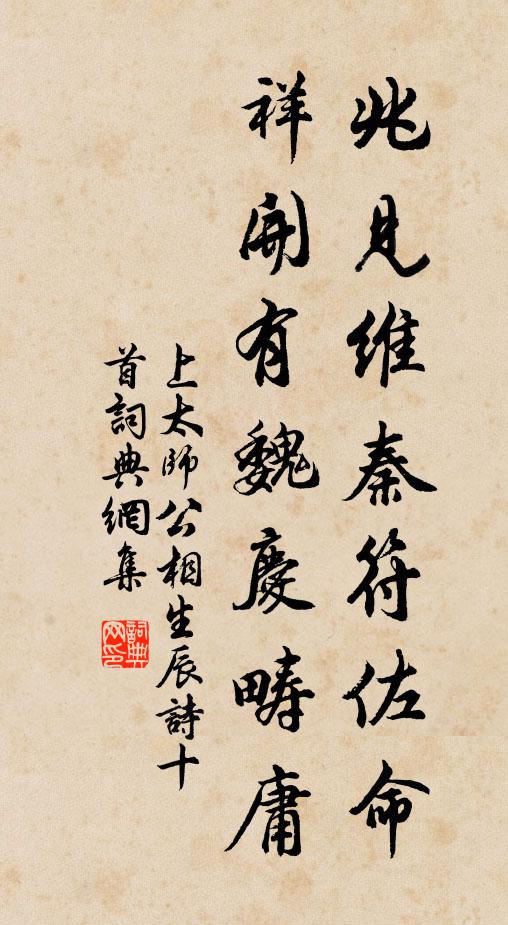 兆見維秦符佐命
祥開有魏慶疇庸
上太師公相生辰詩十
首詞典網集
詞典
网印